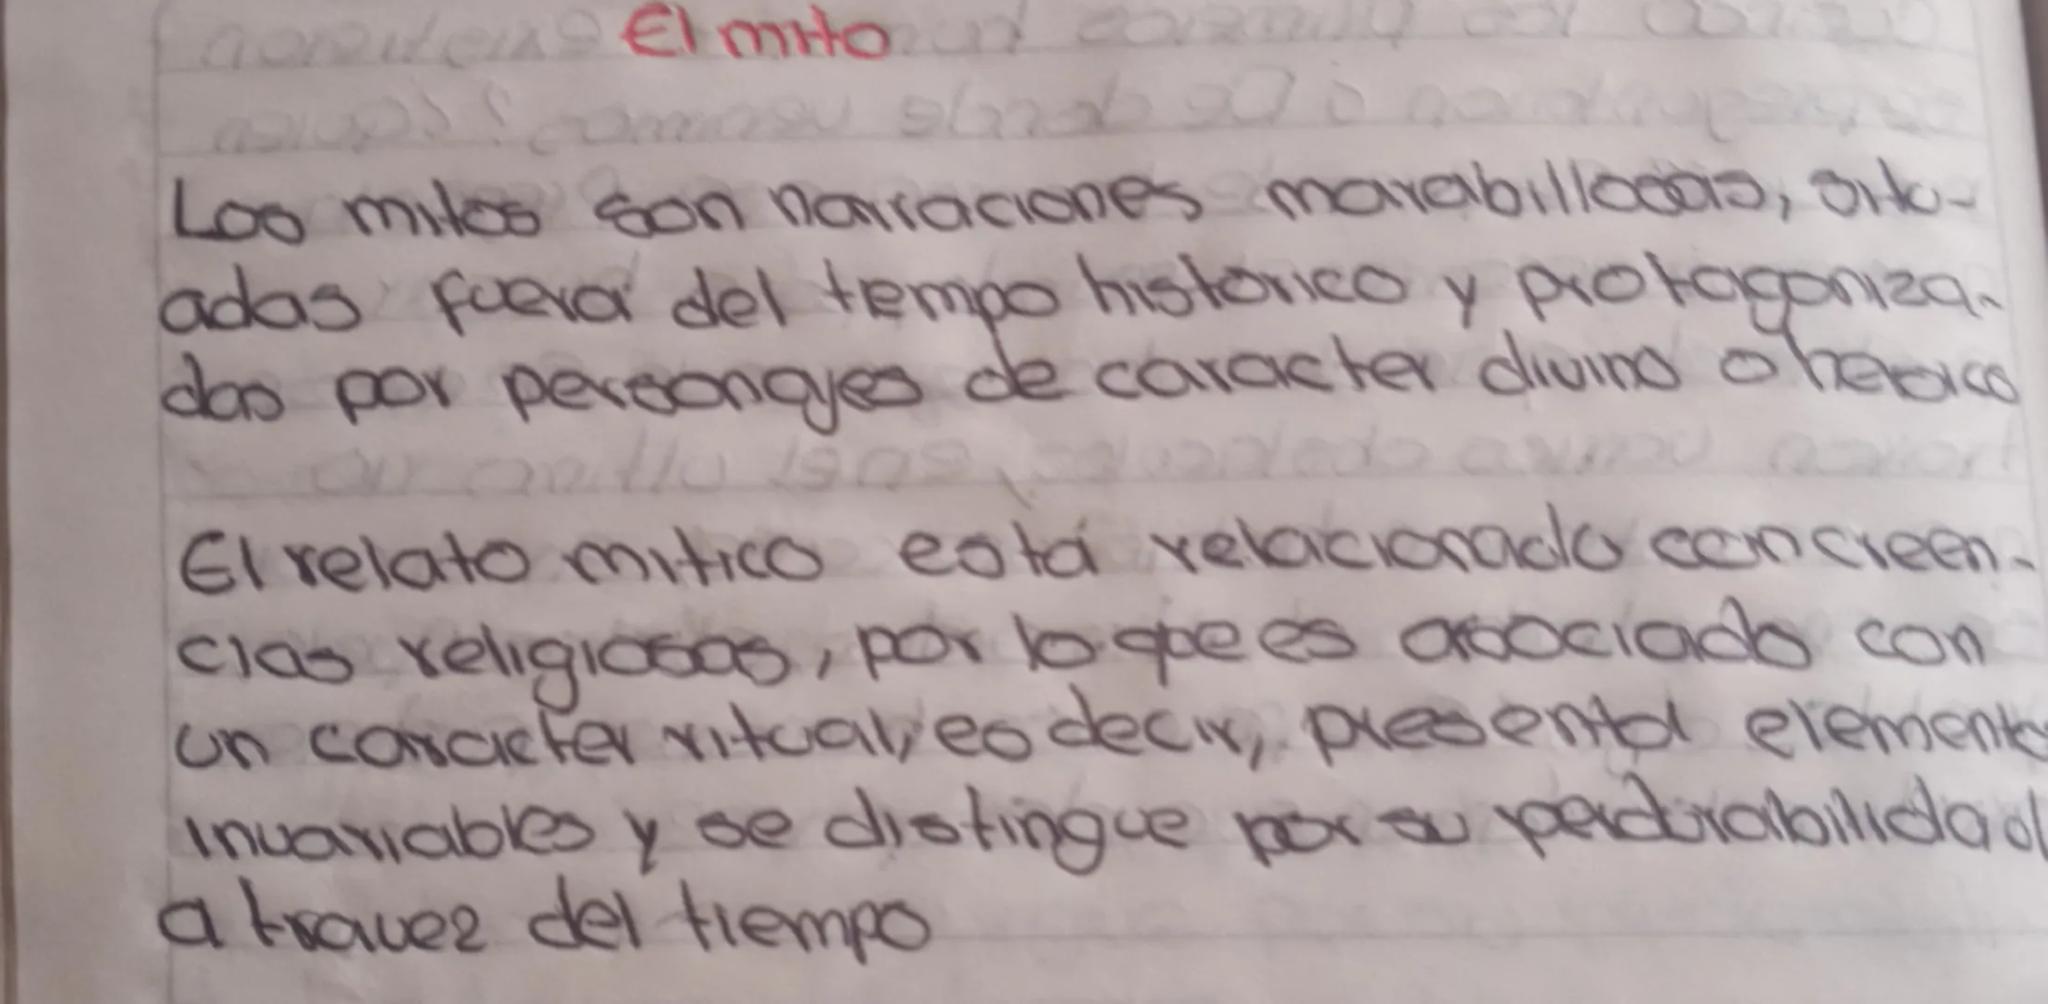 El mito
Los mitos son narraciones marabillosas, situ-
adas fuera del tempo historico y protagoniza-
das por personajes de caracter divino o heroico
El relato mitico está relacionado con creen-
cias religiosas, por lo que es asociado con
un caracter ritual, es decir, presenta elemento
invariables y se distingue por su perdurabilidad
a travez del tiempo